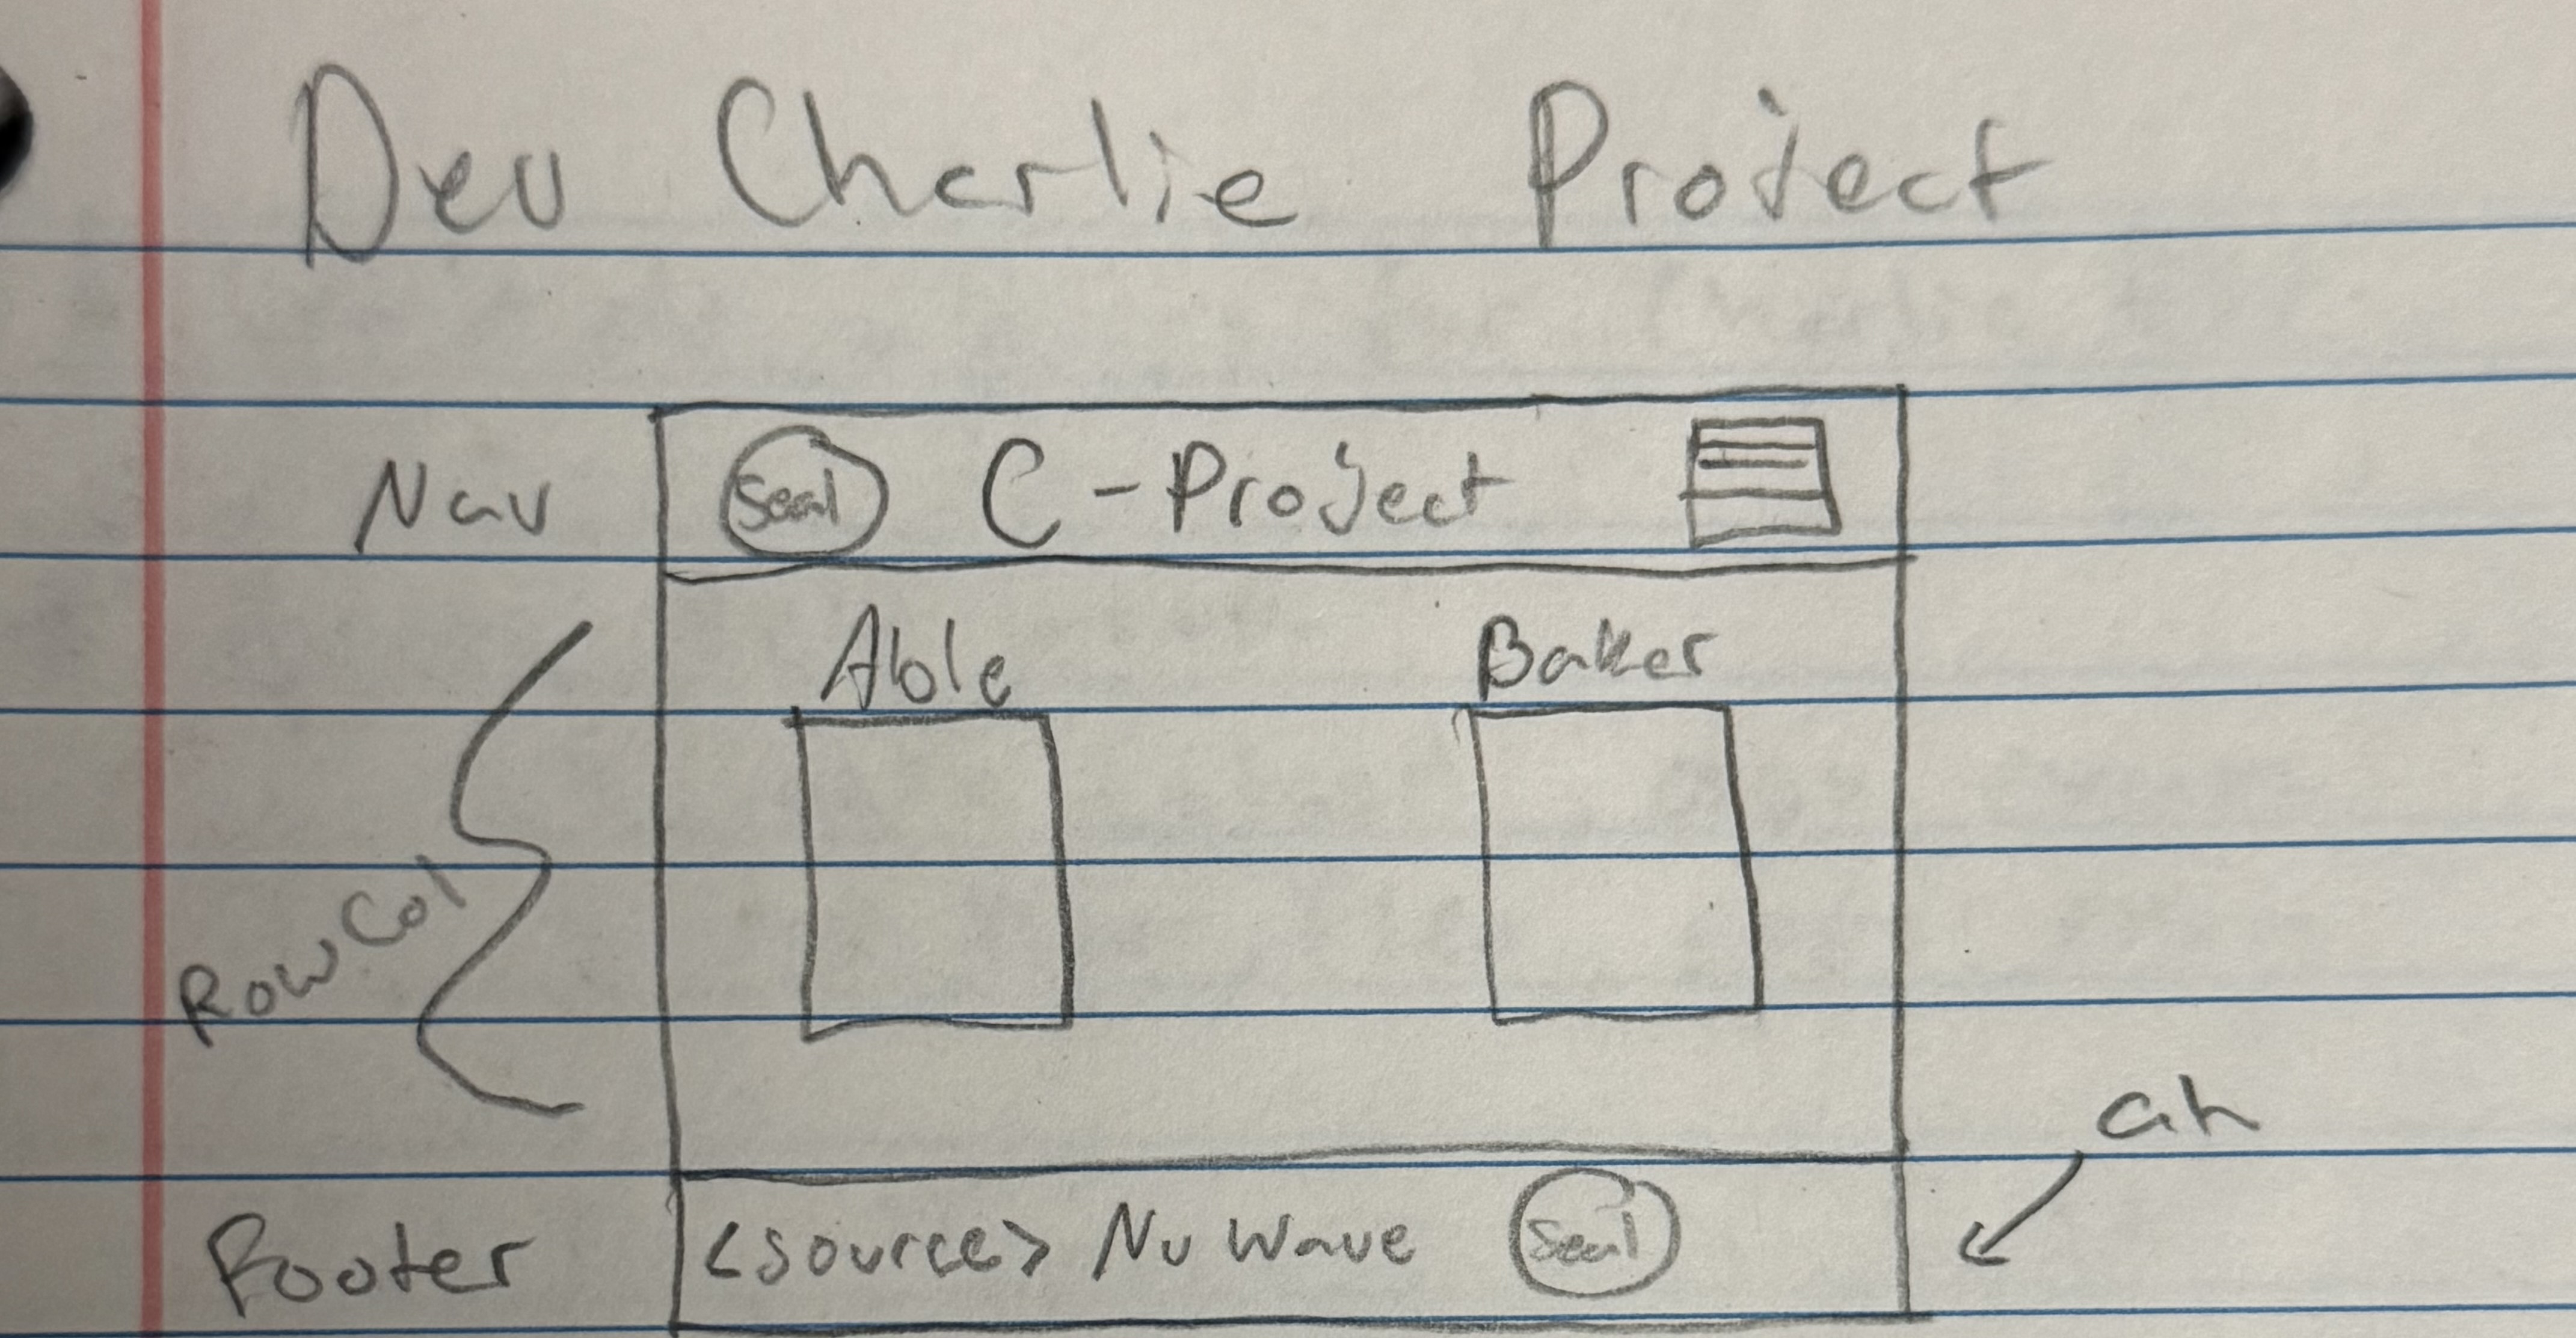 Dev Charlie Project
Nav
Seal C-Project
Able Baker
Row Col
Footer
<source> Nu Wave Seal